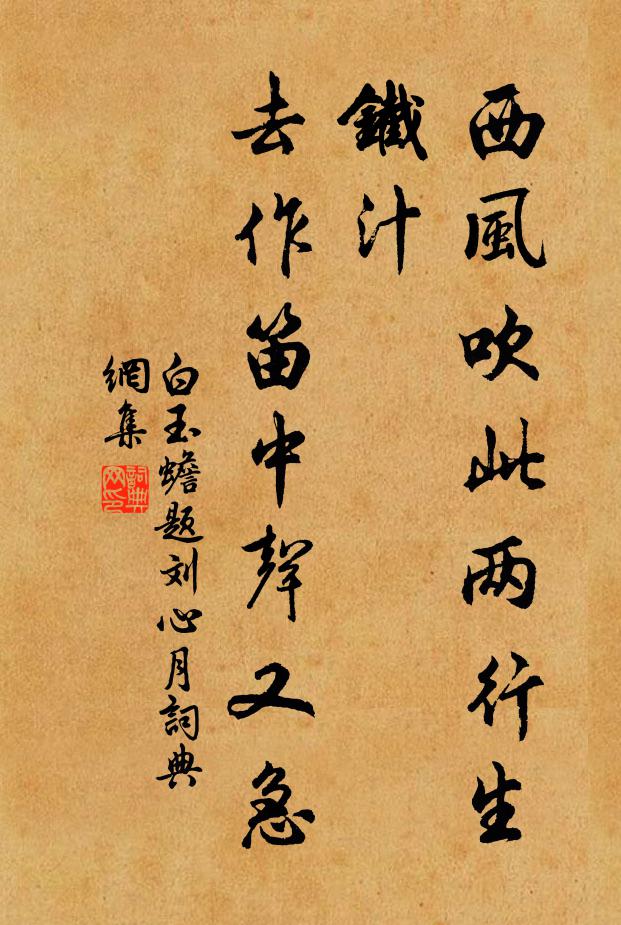 西風吹此两行生
鐵汁
去作笛中聲又急
白玉蟾题刘心月詞典
網集
詞典
网印